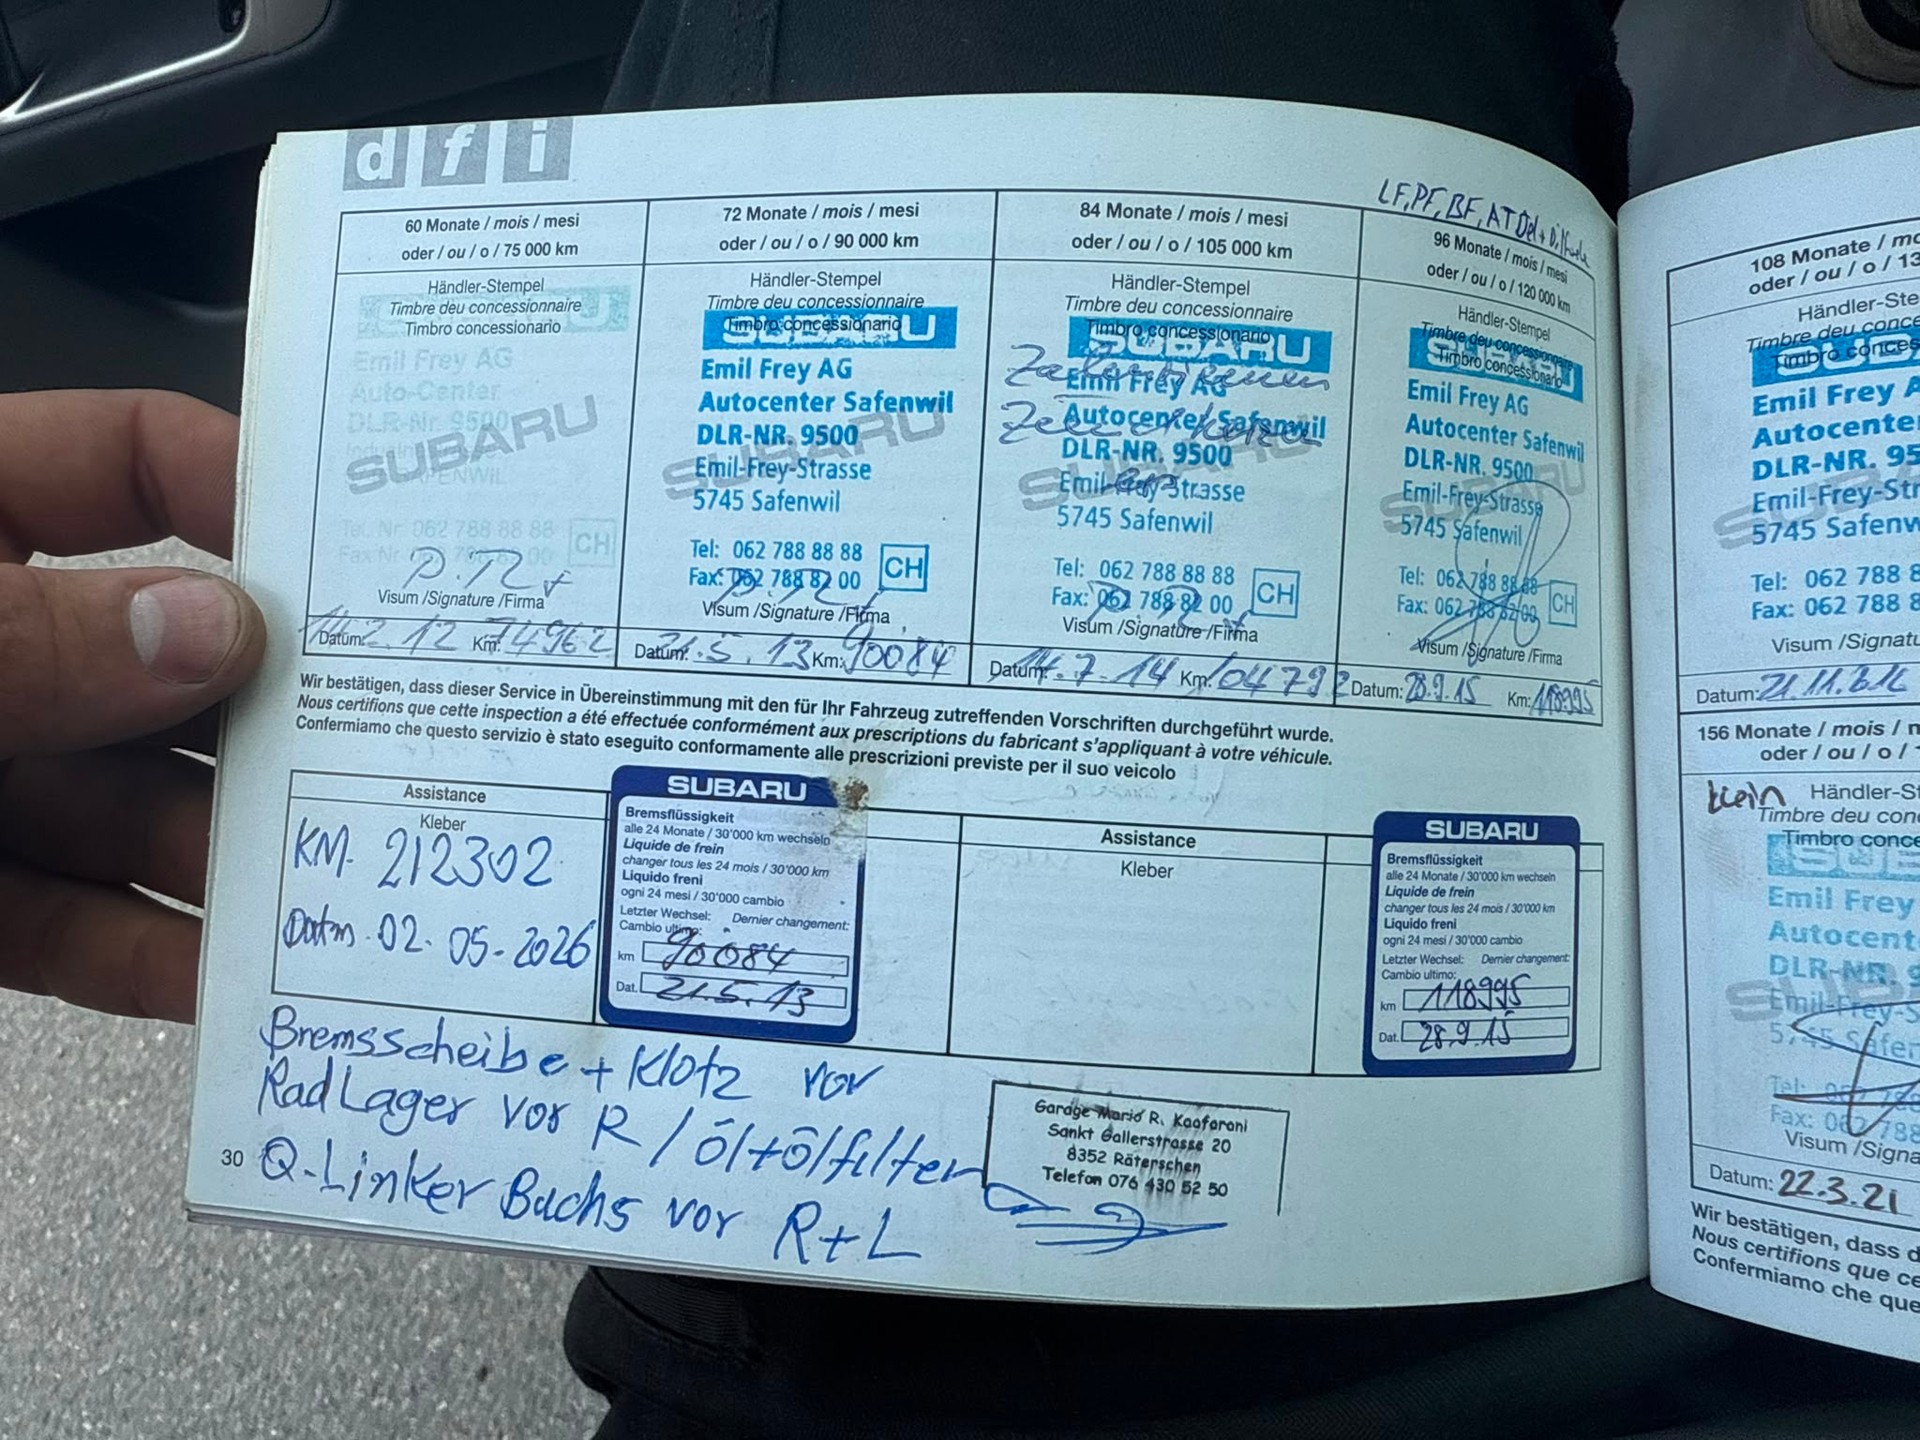 dfi
LF, PF, BF, AT Oel + Diff oele
60 Monate / mois / mesi
oder / ou / o / 75 000 km
Händler-Stempel
Timbre deu concessionnaire
Timbro concessionario
Emil Frey AG
Auto-Center
DLR-Nr. 9500
SUBARU
SAFENWIL
Tel. Nr. 062 788 88 88
Fax Nr. 062 788 82 00
CH
Visum /Signature /Firma
Datum: 14.2.12 Km: 74962
72 Monate / mois / mesi
oder / ou / o / 90 000 km
Händler-Stempel
Timbre deu concessionnaire
Timbro concessionario
SUBARU
Emil Frey AG
Autocenter Safenwil
DLR-NR. 9500
SUBARU
Emil-Frey-Strasse
5745 Safenwil
Tel: 062 788 88 88
Fax: 062 788 82 00
CH
Visum /Signature /Firma
Datum: 21.5.13 Km: 90084
84 Monate / mois / mesi
oder / ou / o / 105 000 km
Händler-Stempel
Timbre deu concessionnaire
Timbro concessionario
SUBARU
Zahnriemen
Emil Frey AG
Autocenter Safenwil
DLR-NR. 9500
SUBARU
Emil-Frey-Strasse
5745 Safenwil
Tel: 062 788 88 88
Fax: 062 788 82 00
CH
Visum /Signature /Firma
Datum: 14.7.14 Km: 104792
96 Monate / mois / mesi
oder / ou / o / 120 000 km
Händler-Stempel
Timbre deu concessionnaire
Timbro concessionario
SUBARU
Emil Frey AG
Autocenter Safenwil
DLR-NR. 9500
SUBARU
Emil-Frey-Strasse
5745 Safenwil
Tel: 062 788 88 88
Fax: 062 788 82 00
CH
Visum /Signature /Firma
Datum: 28.9.15 Km: 118995
Wir bestätigen, dass dieser Service in Übereinstimmung mit den für Ihr Fahrzeug zutreffenden Vorschriften durchgeführt wurde.
Nous certifions que cette inspection a été effectuée conformément aux prescriptions du fabricant s'appliquant à votre véhicule.
Confermiamo che questo servizio è stato eseguito conformamente alle prescrizioni previste per il suo veicolo
Assistance
Kleber
KM. 212302
Datm. 02.05-2026
SUBARU
Bremsflüssigkeit
alle 24 Monate / 30'000 km wechseln
Liquide de frein
changer tous les 24 mois / 30'000 km
Liquido freni
ogni 24 mesi / 30'000 cambio
Letzter Wechsel: Dernier changement:
Cambio ultimo:
km 90084
Dat. 21.5.13
Assistance
Kleber
SUBARU
Bremsflüssigkeit
alle 24 Monate / 30'000 km wechseln
Liquide de frein
changer tous les 24 mois / 30'000 km
Liquido freni
ogni 24 mesi / 30'000 cambio
Letzter Wechsel: Dernier changement:
Cambio ultimo:
km 118995
Dat. 28.9.15
Bremsscheibe + Klotz vor
Rad Lager vor R / Öl+Ölfilter
Q-Linker Buchs vor R+L
Garage Mario R. Kaafarani
Sankt Gallerstrasse 20
8352 Räterschen
Telefon 076 430 52 50
30
108 Monate / mo
oder / ou / o / 13
Händler-Ste
Timbre deu conce
Timbro conces
Emil Frey A
Autocente
DLR-NR. 95
Emil-Frey-Str
5745 Safenw
Tel: 062 788 8
Fax: 062 788 8
Visum /Signatu
Datum: 21.11.
156 Monate / mois / m
oder / ou / o /
klein
Händler-St
Timbre deu con
Timbro conce
Emil Frey
Autocent
DLR-NR. 9
Emil-Frey-S
5745 Safen
Tel: 062 788
Fax: 062 788
Visum /Signa
Datum: 22.3.21
Wir bestätigen, dass d
Nous certifions que ce
Confermiamo che que